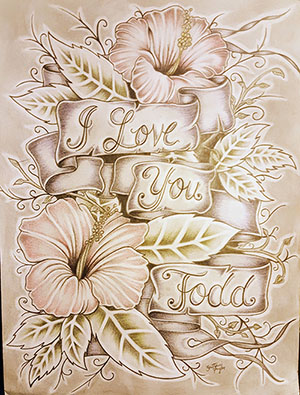 I Love
You
Todd